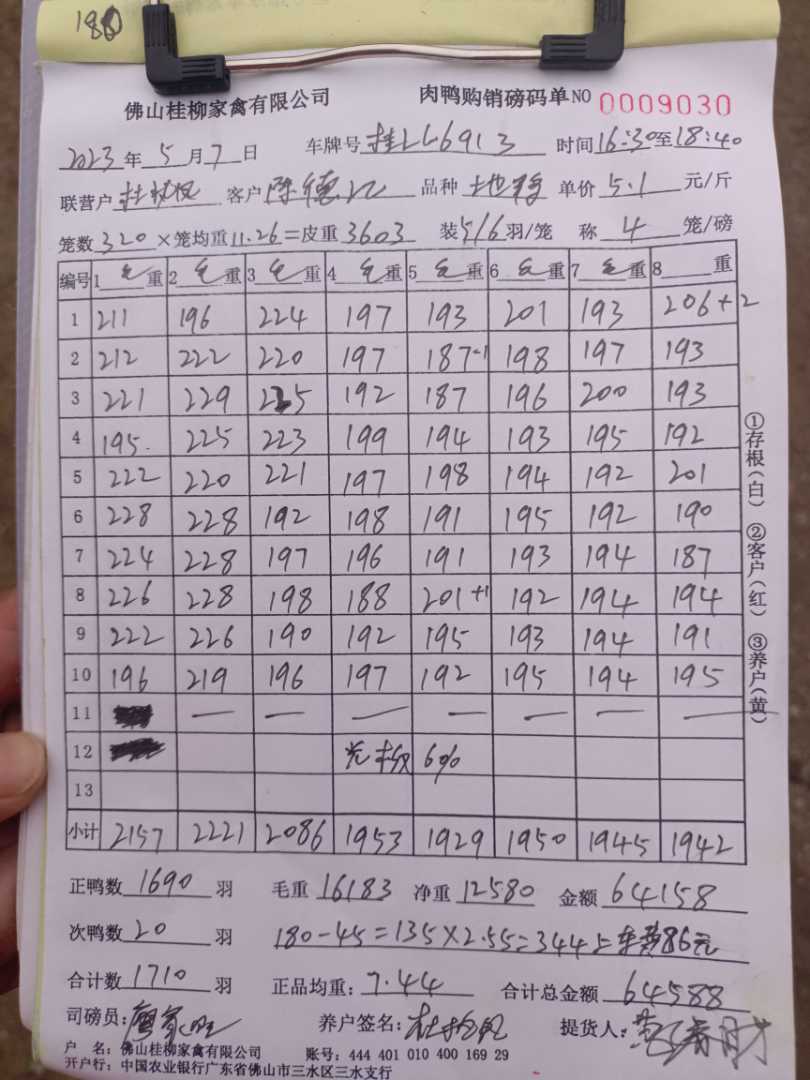 180
佛山桂柳家禽有限公司 肉鸭购销磅码单 NO 0009030
2023年5月7日 车牌号 桂LL6913 时间16:30至18:40
联营户 客户 陈德 品种 单价 5.1 元/斤
笼数 320 ×笼均重 11.26 =皮重 3603 装 5/6 羽/笼 称 4 笼/磅
编号 1 毛 重 2 毛 重 3 毛 重 4 毛 重 5 毛 重 6 毛 重 7 毛 重 8 重
1 211 196 224 197 193 201 193 206+2
2 212 222 220 197 187-1 198 197 193
3 221 229 225 192 187 196 200 193
4 195 225 223 199 194 193 195 192
5 222 220 221 197 198 194 192 201
6 228 228 192 198 191 195 192 190
7 224 228 197 196 191 193 194 187
8 226 228 198 188 201+1 192 194 194
9 222 226 190 192 195 193 194 191
10 196 219 196 197 192 195 194 195
11 — — — — — — —
12 光 6%
13
小计 2157 2221 2086 1953 1929 1950 1945 1942
①存根(白) ②客户(红) ③养户(黄)
正鸭数 1690 羽 毛重 16183 净重 12580 金额 64158
次鸭数 20 羽 180-45=135×2.55=344 车费86元
合计数 1710 羽 正品均重: 7.44 合计总金额 64588
司磅员: 养户签名: 提货人:
户 名: 佛山桂柳家禽有限公司 账号: 444 401 010 400 169 29
开户行: 中国农业银行广东省佛山市三水区三水支行